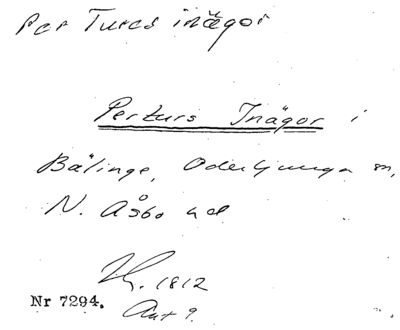 Per Tures inägor
Perturs Inägor i
Bälinge, Oderljunga sn,
N. Åsbo hd
1812
Nr 7294. Avt 9.